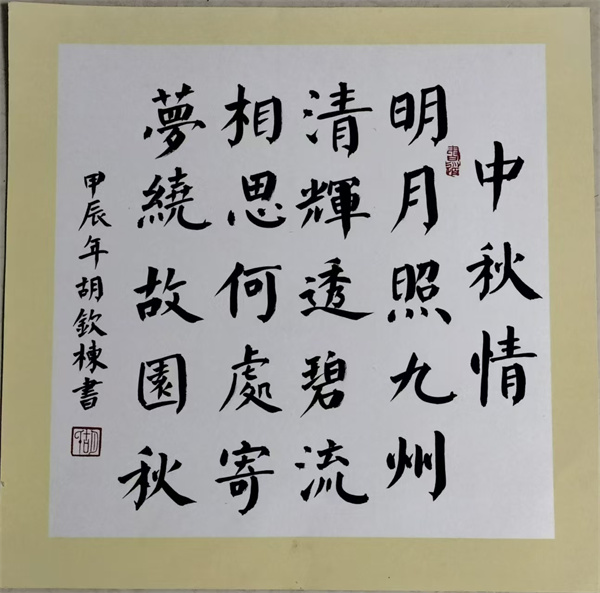 中秋情
明月照九州
清輝透碧流
相思何處寄
夢繞故園秋
甲辰年胡欽棟書